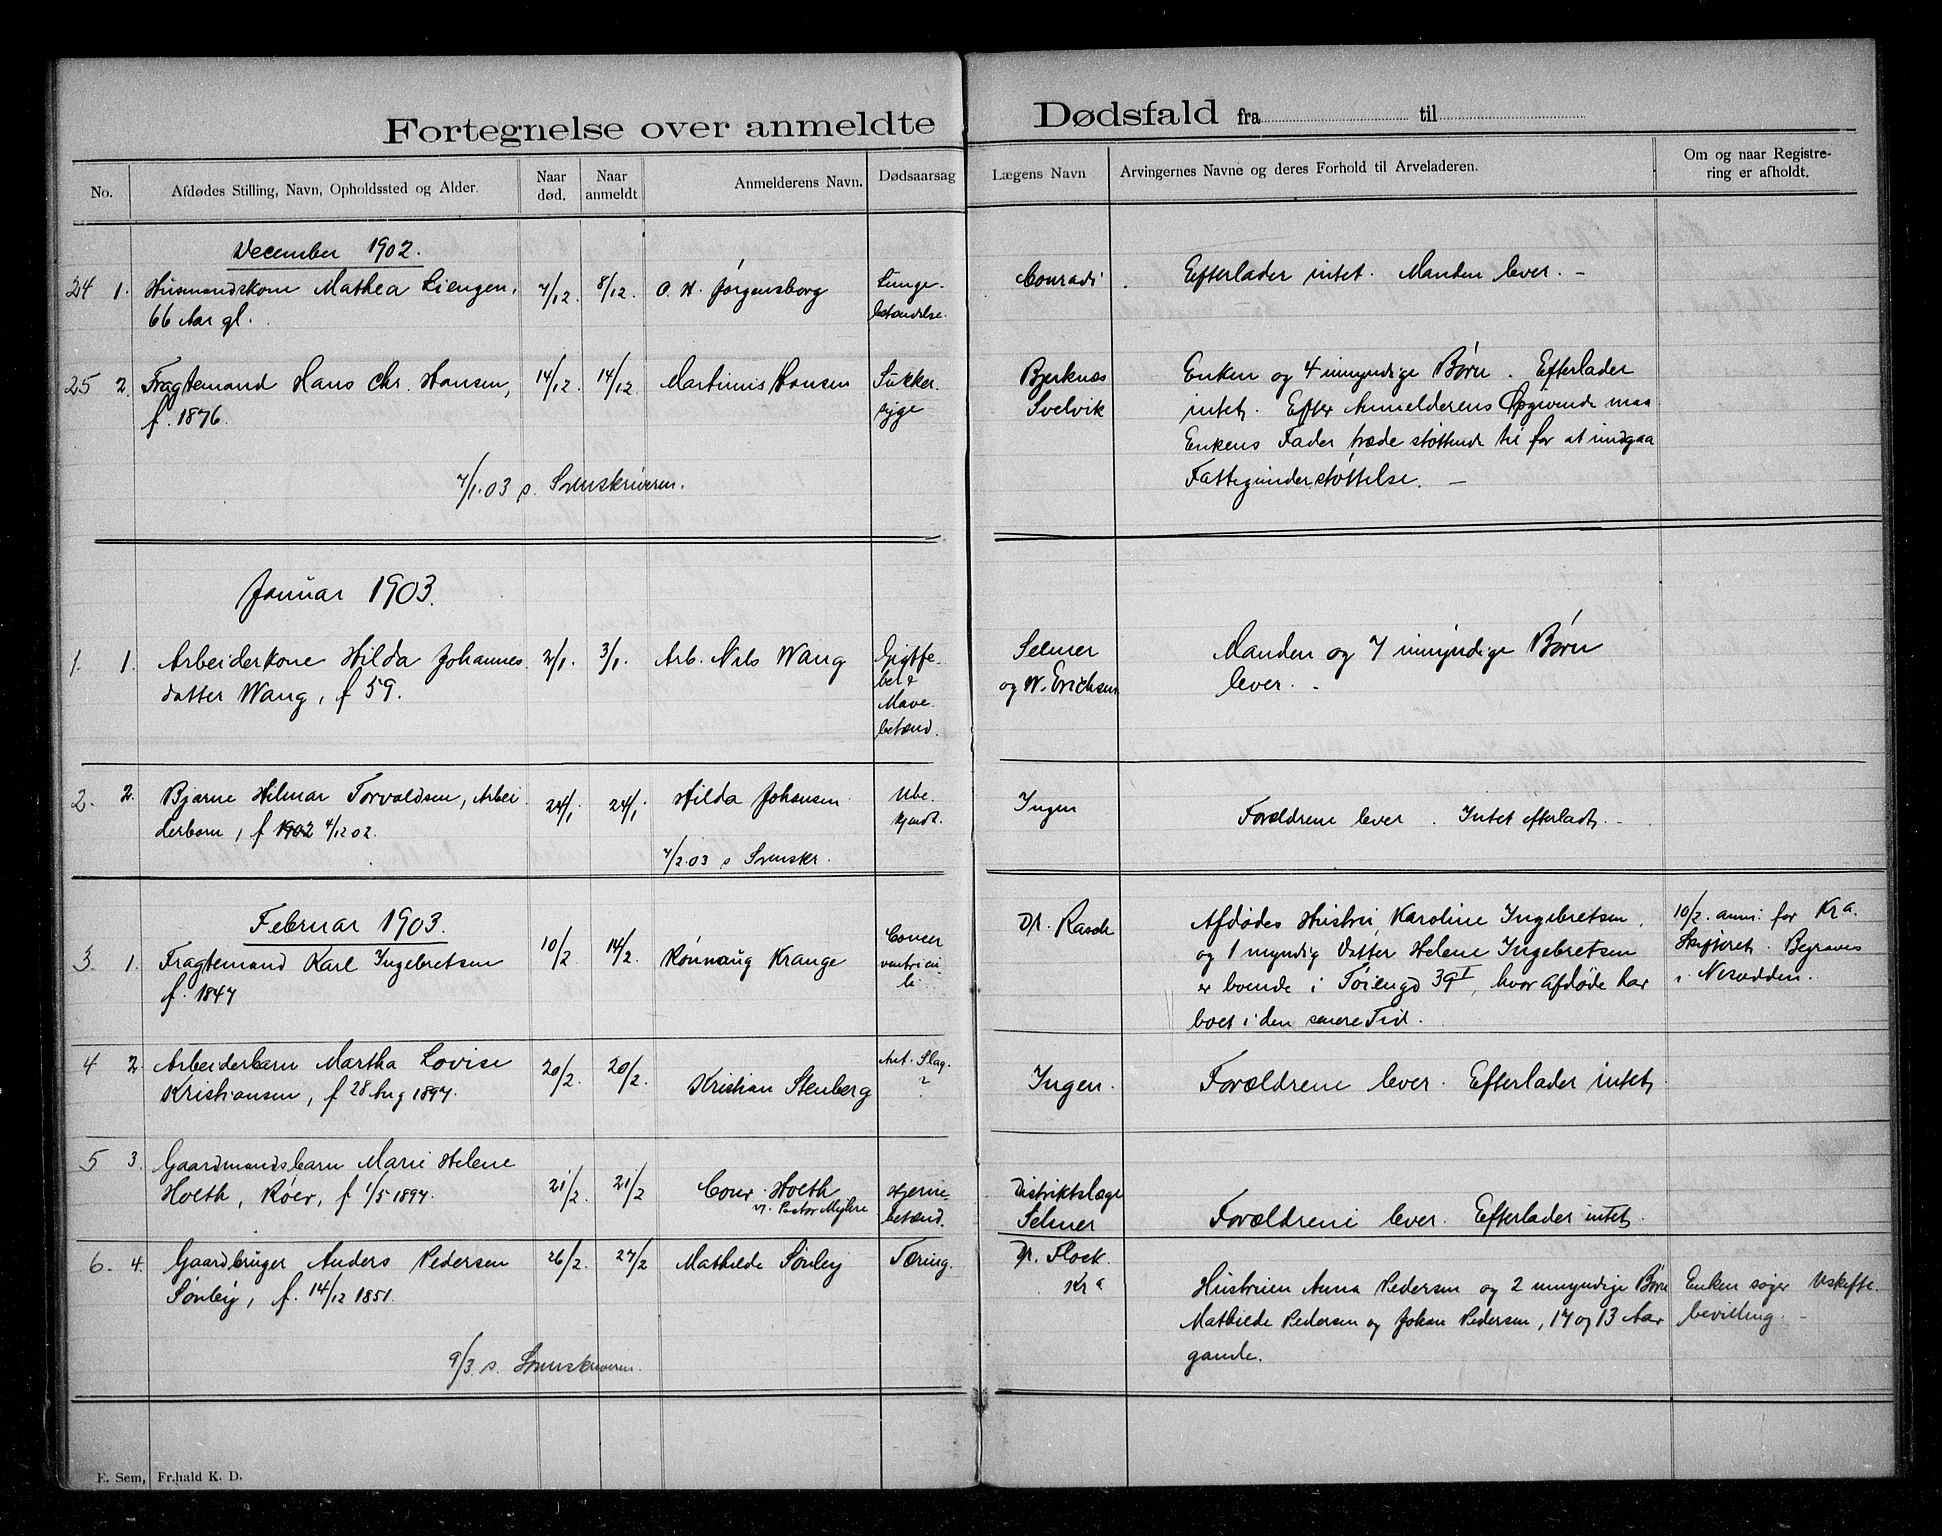 Fortegnelse over anmeldte Dødsfald fra til
No. Afdødes Stilling, Navn, Opholdssted og Alder. Naar død. Naar anmeldt Anmelderens Navn. Dødsaarsag Lægens Navn Arvingernes Navne og deres Forhold til Arveladeren. Om og naar Registrering er afholdt.
December 1902.
24 1. Husmandskone Mathea Liengen, 7/12. 8/12. O. H. Jørgensborg Lunge- Conradi Efterlader intet. Manden lever. –
66 Aar gl. betændelse.
25 2. Fragtemand Hans Chr. Hansen, 14/12. 14/12. Martinius Hansen Sukker Bjerknæs Enken og 4 umyndige Børn. Efterlader
f. 1876. syge Svelvik intet. Efter Anmelderens Opgivende maa
Enkens Fader træde støttende til for at undgaa
7/1.03 s. Sorenskriveren. Fattigunderstøttelse. –
Januar 1903.
1. 1. Arbeiderkone Hilda Johannes 2/1. 3/1. Arb. Nils Wang Gigtfe- Selmer Manden og 7 umyndige Børn
datter Wang, f 59. ber & og W. Erichsen lever. –
Mave
betænd.
2. 2. Bjarne Hilmar Torvaldsen, Arbei 24/1 24/1 Hilda Johansen Ube- Ingen Forældrene lever. Intet efterladt. –
derbarn, f 1902 4/12 02. kjendt.
7/2.03 s Sorenskr.
Februar 1903.
3. 1. Fragtemand Karl Ingebretsen 10/2 14/2. Rønnaug Krange Cancer Dr. Rasch Afdødes Hustru, Karoline Ingebretsen, 10/2. anm. for Kra.
f. 1847 ventricu- og 1 myndig Datter Helene Ingebretsen Skifteret. Begraves
li er boende i Tøiengd 39 I, hvor Afdøde har i Nesodden.
boet i den senere Tid.
4 2. Arbeiderbarn Martha Lovise 20/2. 20/2. Kristian Stenberg Ant. Slag. Ingen. Forældrene lever. Efterlader intet.
Kristiansen, f 28 Aug 1897. ?
5 3. Gaardmandsbarn Marie Helene
Hoeth, Røer, f 1/5 1897. 21/2. 21/2 Conr. Hoeth Hjerne- Distriktslæge Forældrene lever. Efterlader intet.
v. Pastor Myhre betænd. Selmer
6. 4. Gaardbruger Anders Pedersen 26/2. 27/2 Mathilde Sønby Tæring. Dr. Flock Hustruen Anna Pedersen og 2 umyndige Børn Enken søger Uskifte-
Sønby, f. 14/12 1851. Kra Mathilde Pedersen og Johan Pedersen, 17 og 13 Aar bevilling. –
gamle.
9/3 s. Sorenskriveren.
E. Sem, Fr.hald K. D.